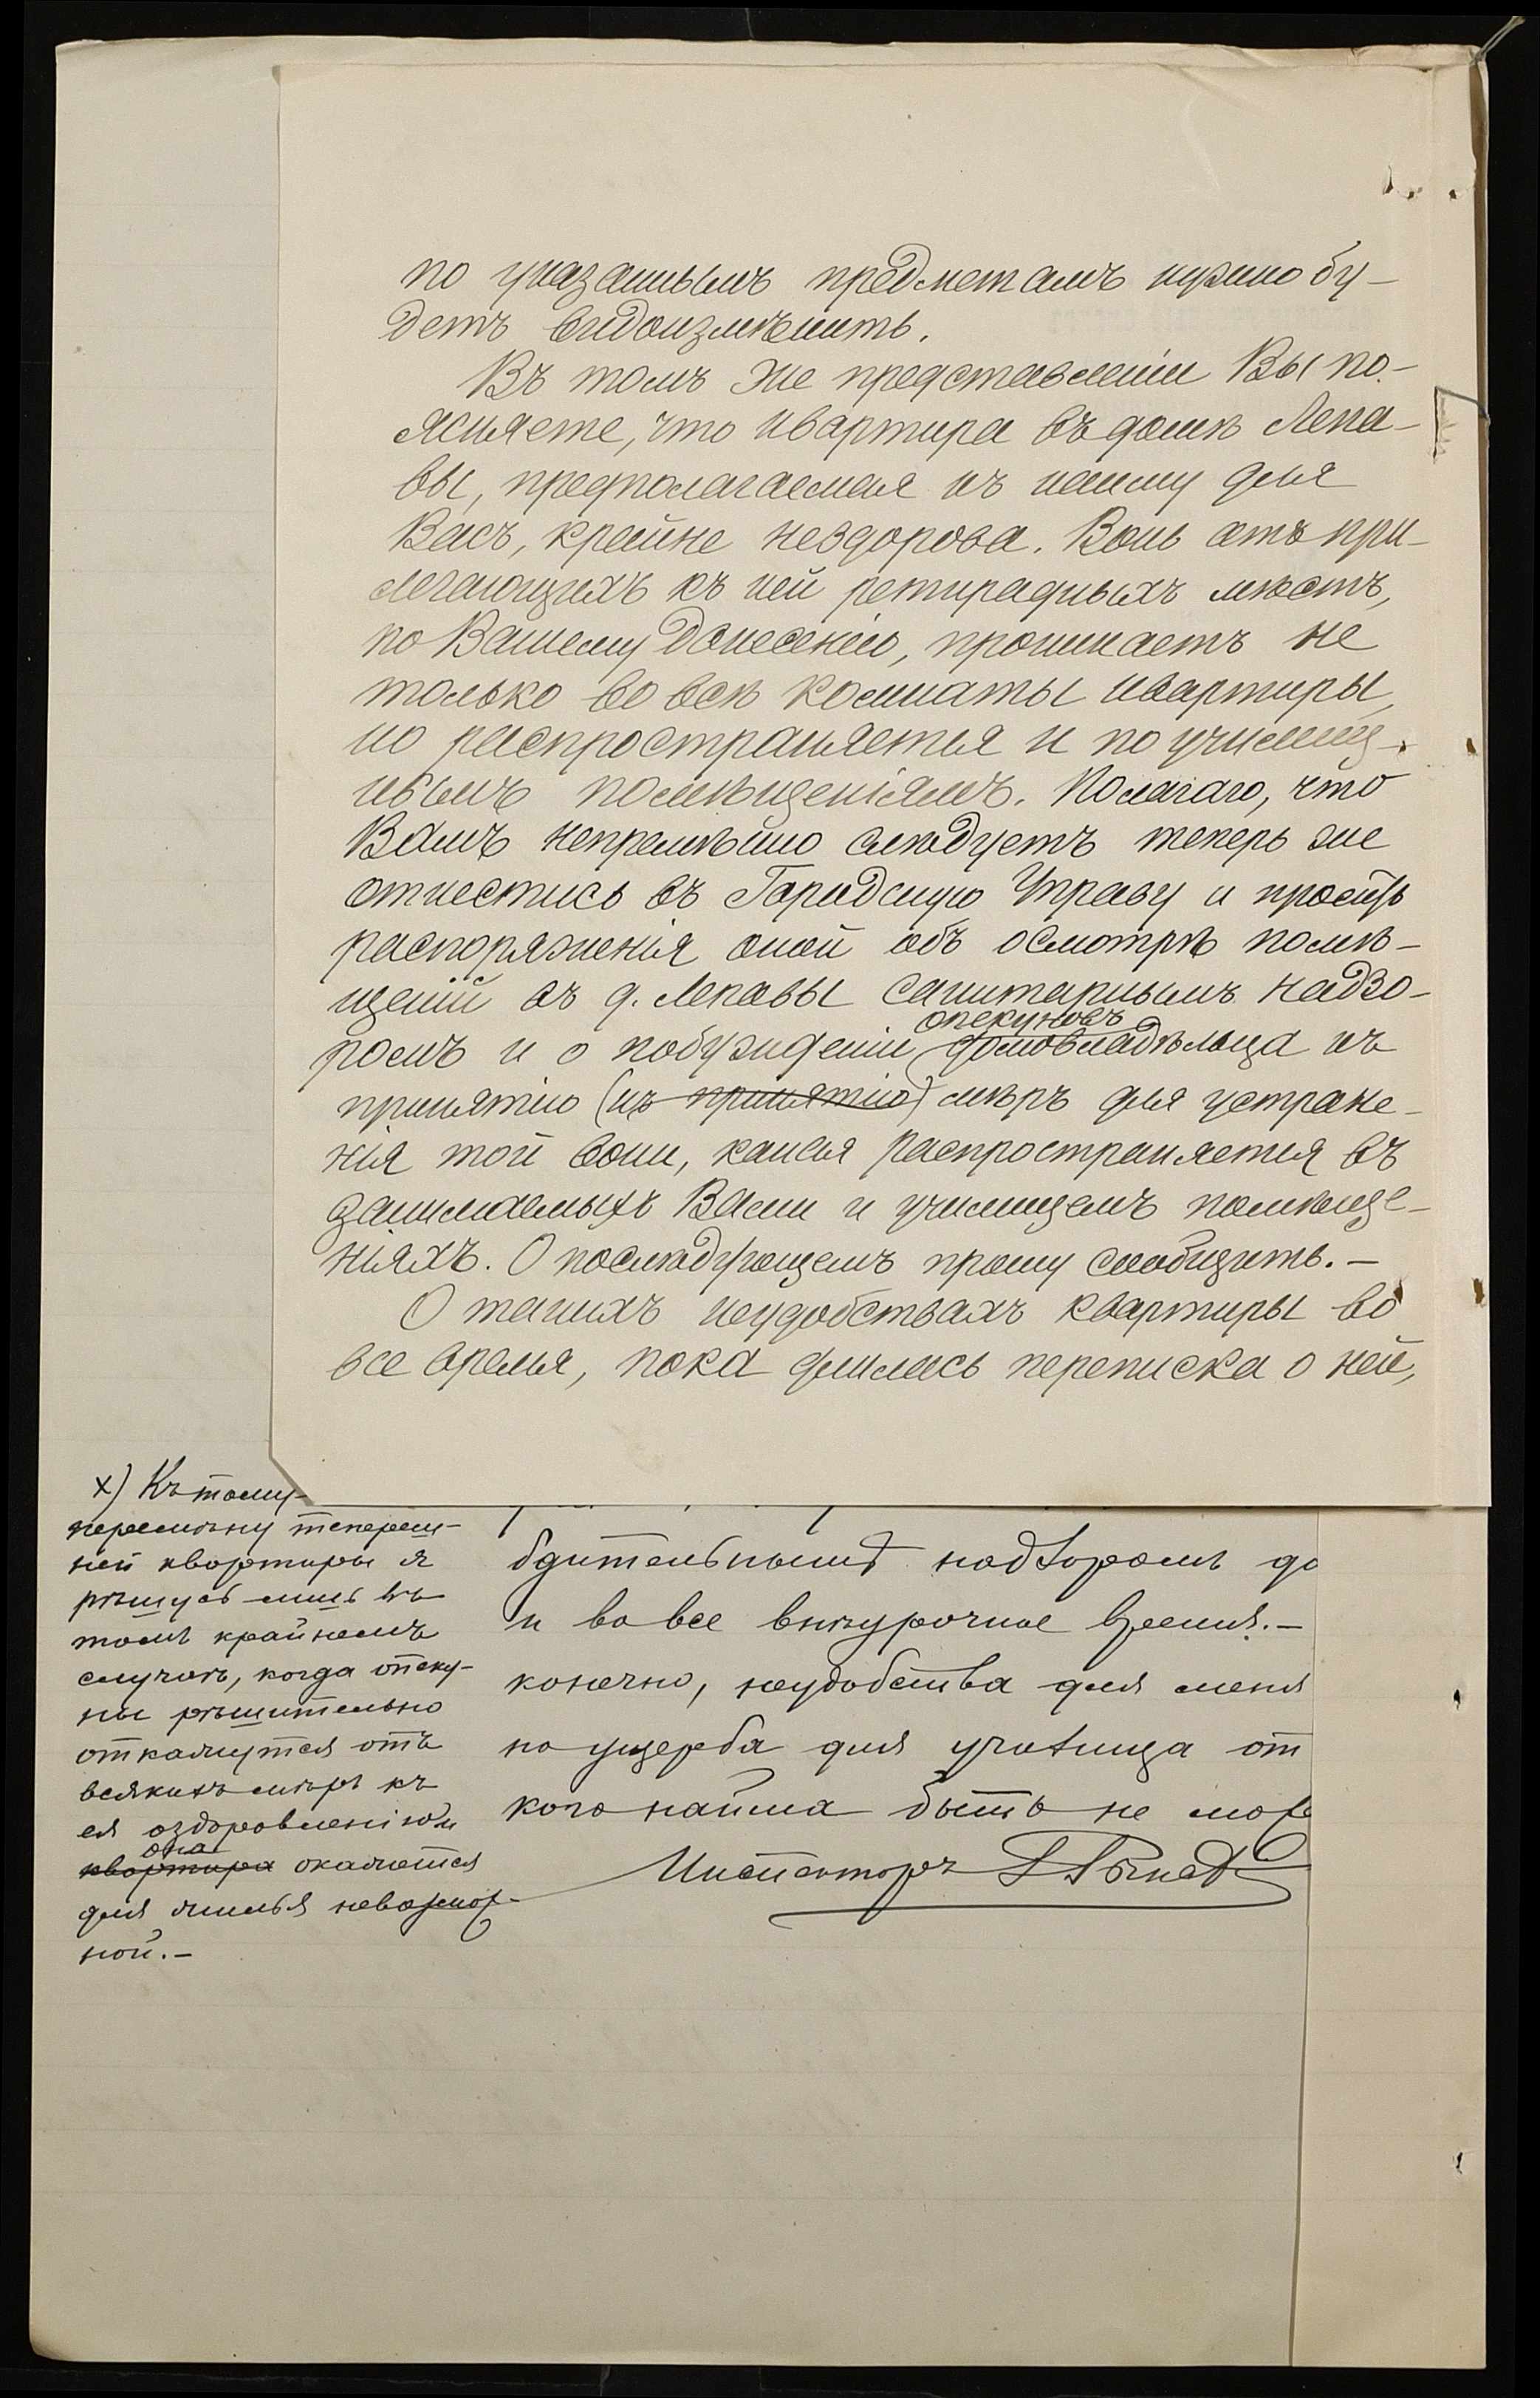 по указаннымъ предметамъ нужно бу-
детъ видоизмѣнить.
Въ томъ же представленіи Вы по-
ясняете, что квартира въ домѣ Лепа-
вы, предполагаемая къ найму для
Васъ, крайне нездорова. Вонь отъ при-
легающихъ къ ней ретирадныхъ мѣстъ,
по Вашему донесенію, проникаетъ не
только во всѣ комнаты квартиры,
но распространяется и по училищ-
нымъ помѣщеніямъ. Полагаю, что
Вамъ непремѣнно слѣдуетъ теперь же
отнестись въ Городскую Управу и просить
распоряженія оной объ осмотрѣ помѣ-
щеній въ д. Лепавы санитарнымъ надзо-
опекуновъ
ромъ и о побужденіи домовладѣльца къ
принятію (къ принятію) мѣръ для устране-
нія той вони, какая распространяется въ
занимаемыхъ Вами и училищемъ помѣще-
ніяхъ. О послѣдующемъ прошу сообщить. –
О такихъ неудобствахъ квартиры во
все время, пока длилась переписка о ней,
х) Къ тому-
перемѣну тепереш-
ней квартиры я
рѣшусь лишь въ
томъ крайнемъ
случаѣ, когда опеку-
ны рѣшительно
откажутся отъ
всякихъ мѣръ къ
ея оздоровленію и
она
квартира окажется
для жилья невозмож-
ной. –
бдительнымъ надзоромъ до
и во все внѣурочное время. –
конечно, неудобства для меня
но ущерба для училища от
кого найма быть не може
Инспекторъ